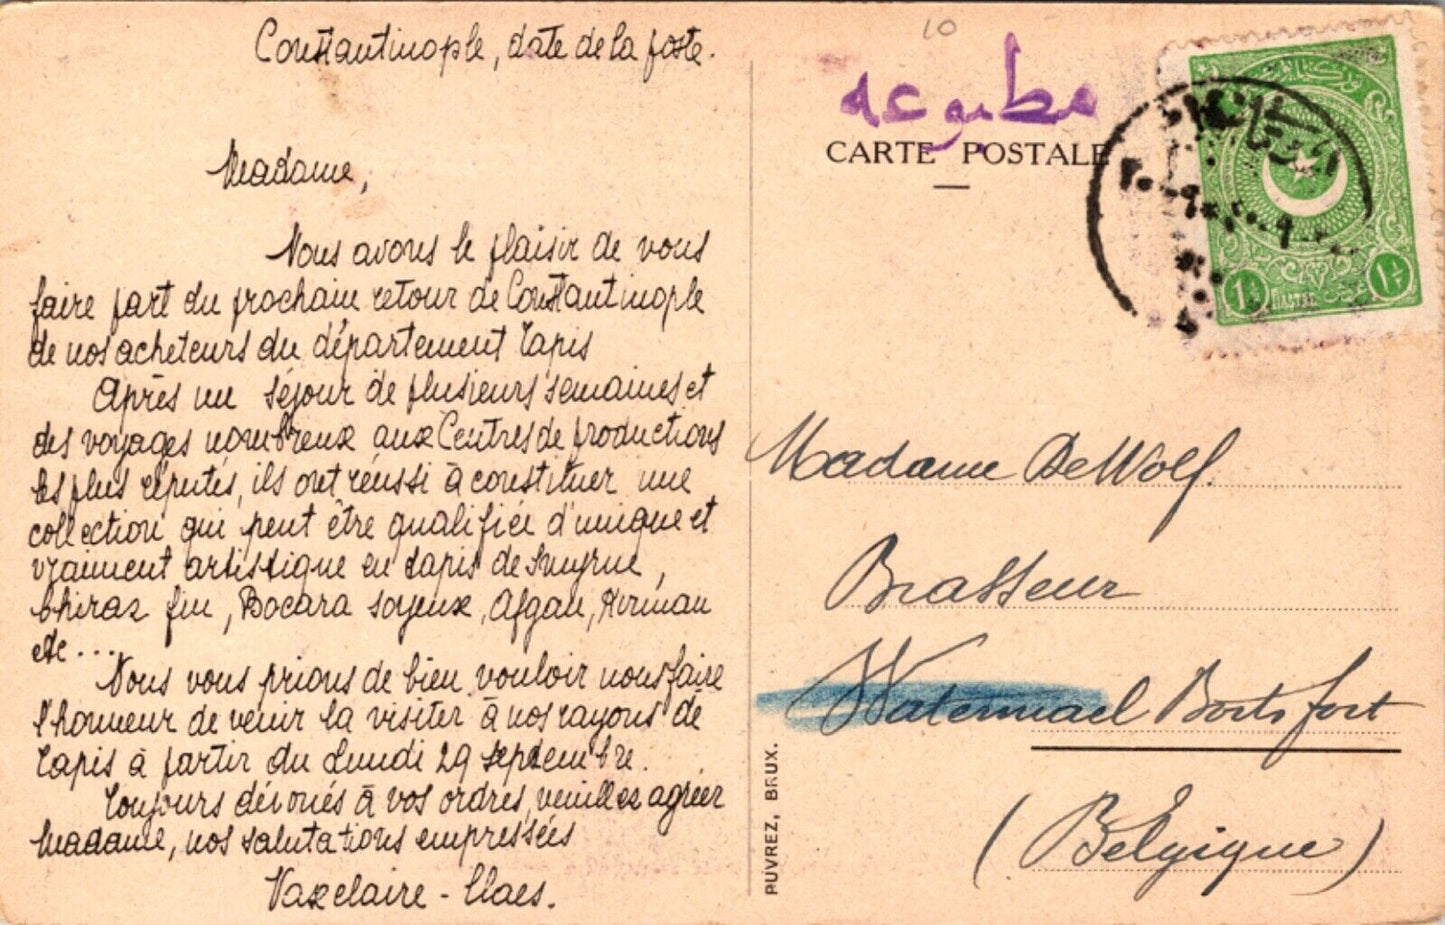 Constantinople, date de la poste.
Madame,
Nous avons le plaisir de vous
faire part du prochain retour de Constantinople
de nos acheteurs du département Tapis
Après un séjour de plusieurs semaines et
des voyages nombreux aux Centres de productions
les plus réputés, ils ont réussi à constituer une
collection qui peut être qualifiée d'unique et
vraiment artistique en tapis de Smyrne,
Chiraz fin, Bocara soyeux, Afgan, Kirman
etc...
Nous vous prions de bien vouloir nous faire
l'honneur de venir la visiter à nos rayons de
Tapis à partir du Lundi 29 septembre.
Toujours dévoués à vos ordres, veuillez agréer
Madame, nos salutations empressées
Vaxelaire - Claes.
10
مطبوعه
CARTE POSTALE
1½ PIASTRE
Madame De Wolf.
Brasseur
Watermael Boitsfort
(Belgique)
PUVREZ, BRUX.